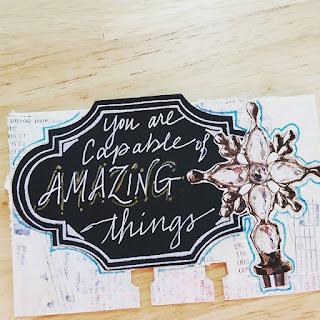 you are
capable of
AMAZING
things